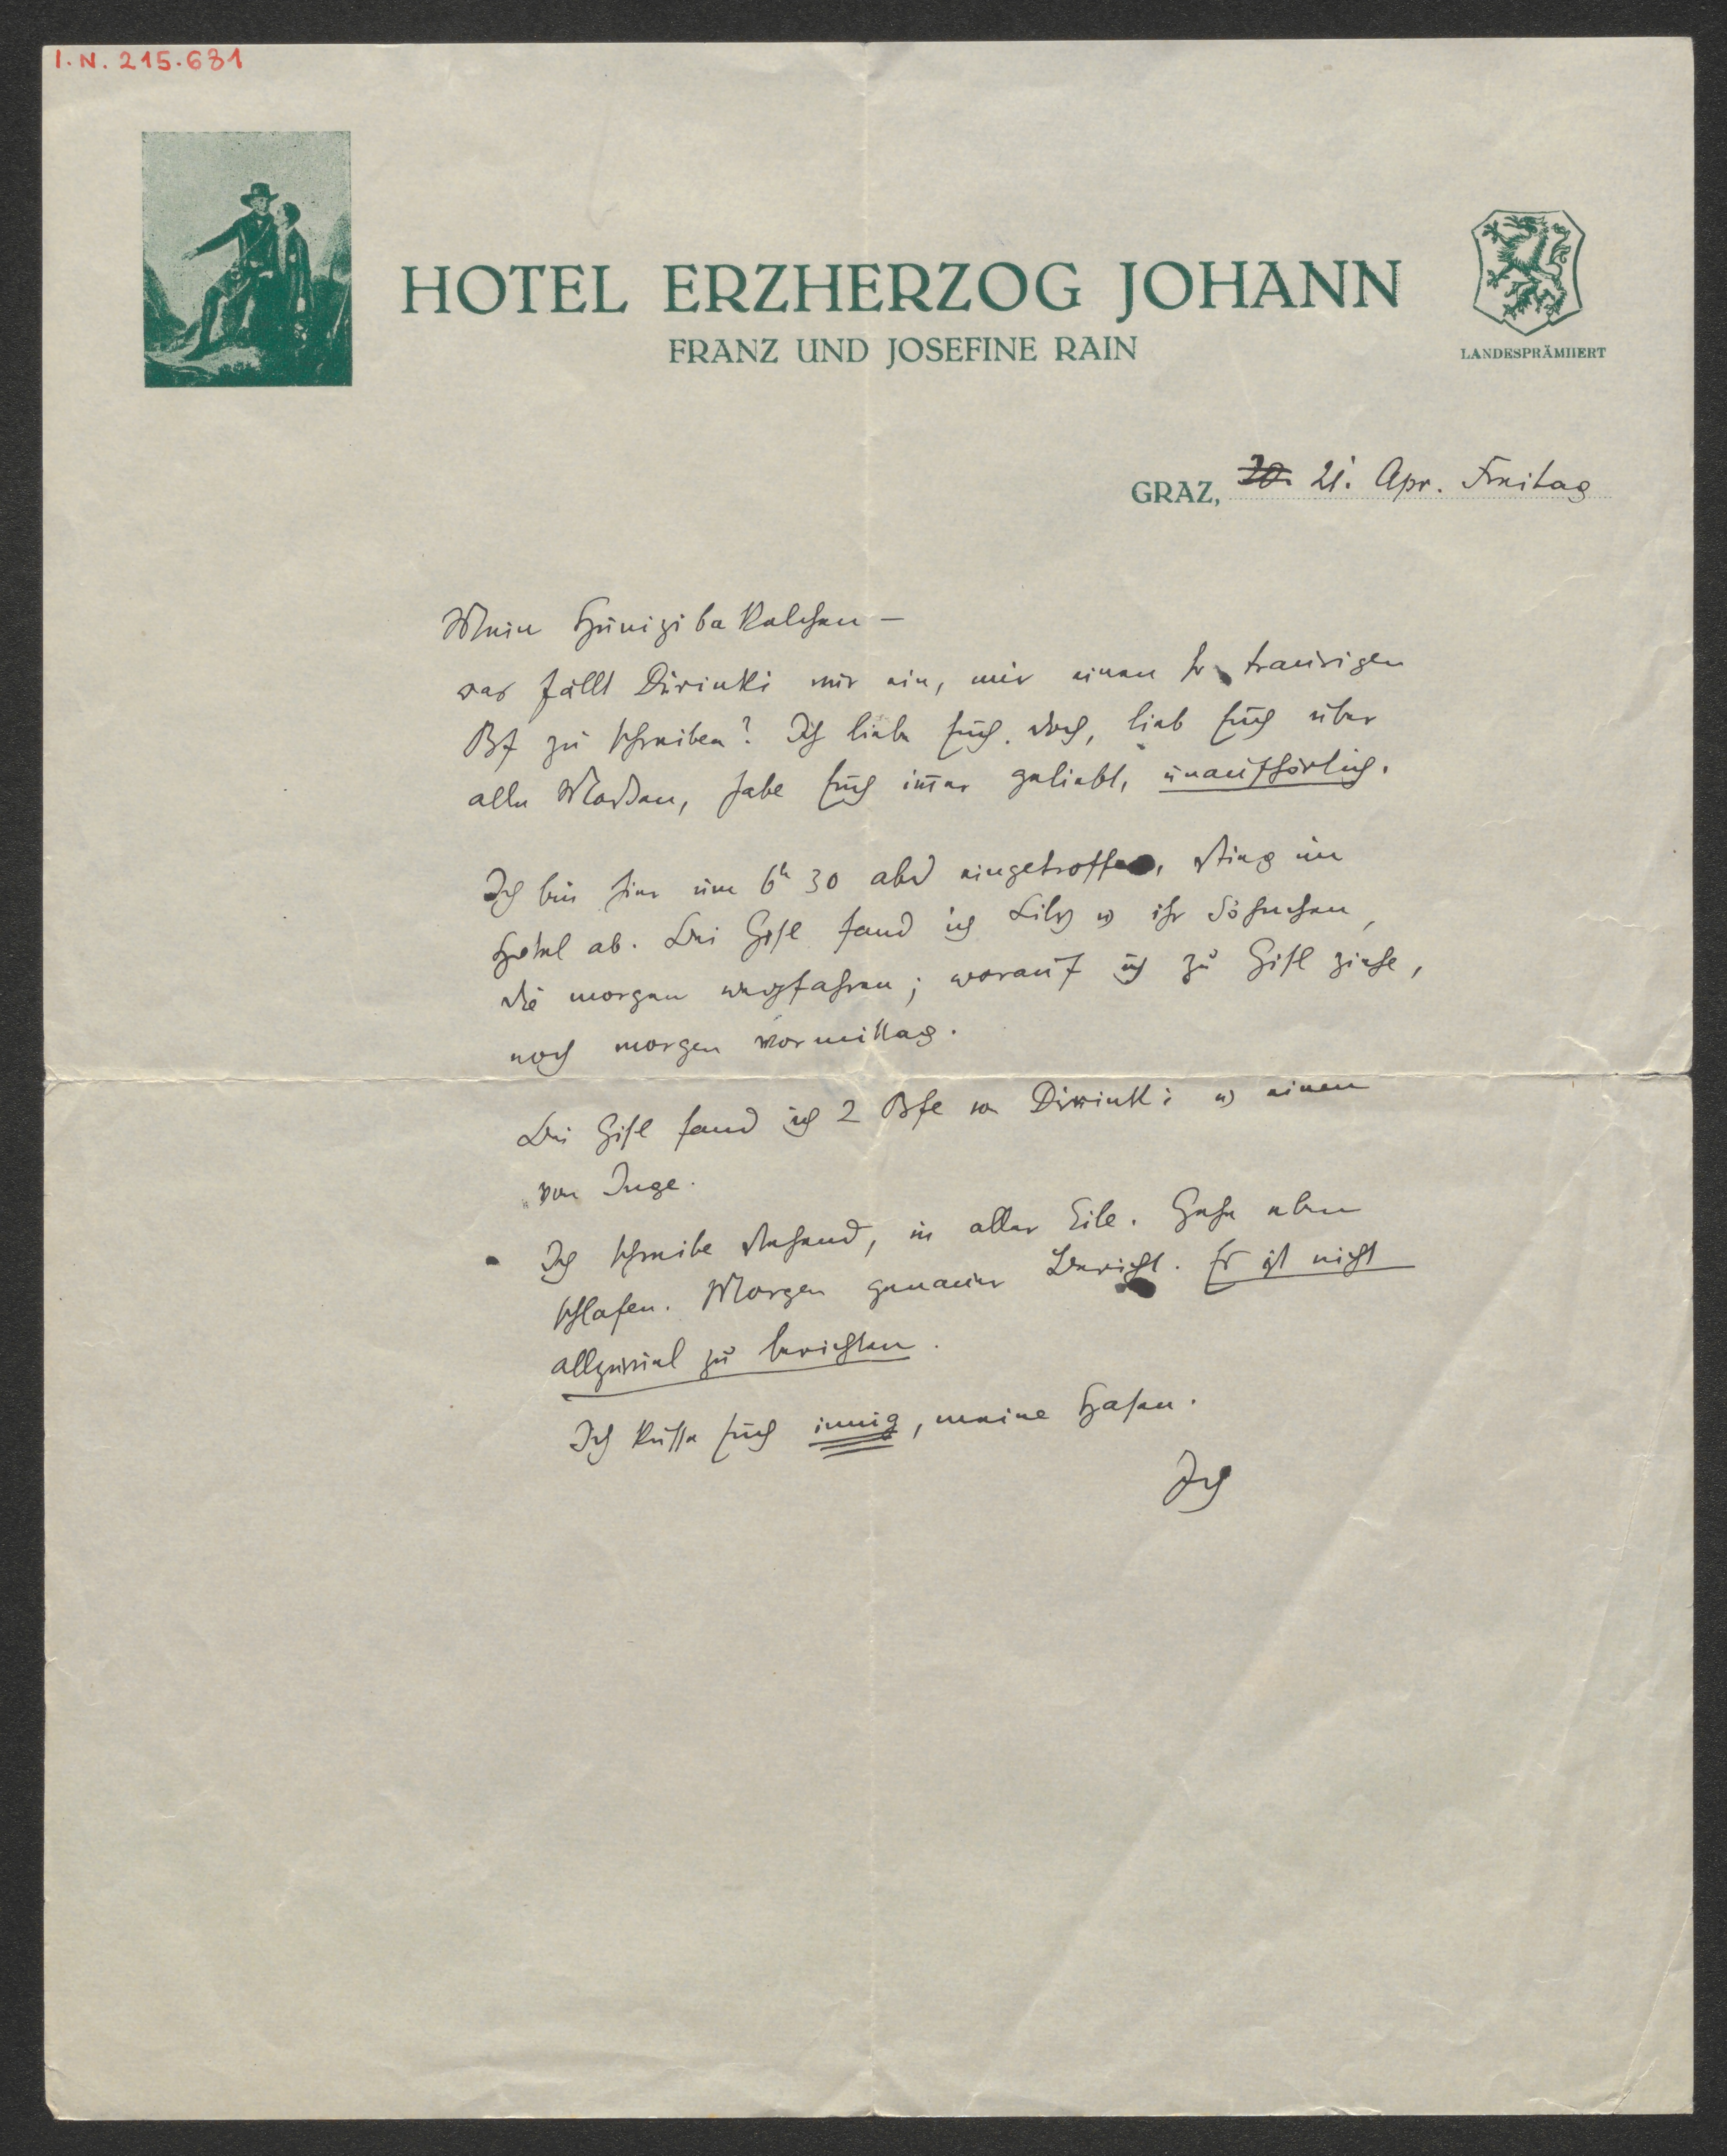 I. N. 215.681
HOTEL ERZHERZOG JOHANN
FRANZ UND JOSEFINE RAIN
LANDESPRÄMIIERT
GRAZ, 20. 21. Apr. Freitag
Mein
was fällt mir ein, mir einen so traurigen
Bf zu schreiben? Ich liebe Euch doch, lieb Euch über
alle Massen, habe Euch im̅er geliebt, unaufhörlich.
Ich bin hier um 6h 30 abd eingetroffen, stieg im
Hotel ab. Bei Gisl fand ich Lily u ihr Söhnchen,
die morgen wegfahren; worauf ich zu Gisl ziehe,
noch morgen vormittag.
Bei Gisl fand ich 2 Bfe von u einen
von Inge.
Ich schreibe stehend, in aller Eile. Gehe eben
schlafen. Morgen genauer Bericht. Es ist nicht
allzuviel zu berichten.
Ich küsse Euch innig, meine Hasen.
Ich